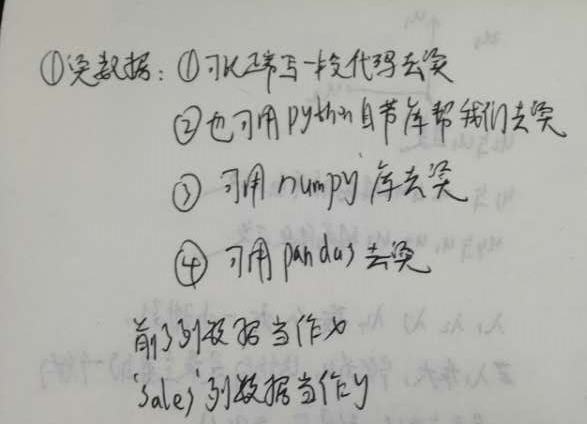 ①读数据：①可以正常写一段代码去读
②也可用python自带库帮我们去读
③可用numpy库去读
④可用pandas去读
前3列数据当作x
'sales'列数据当作y